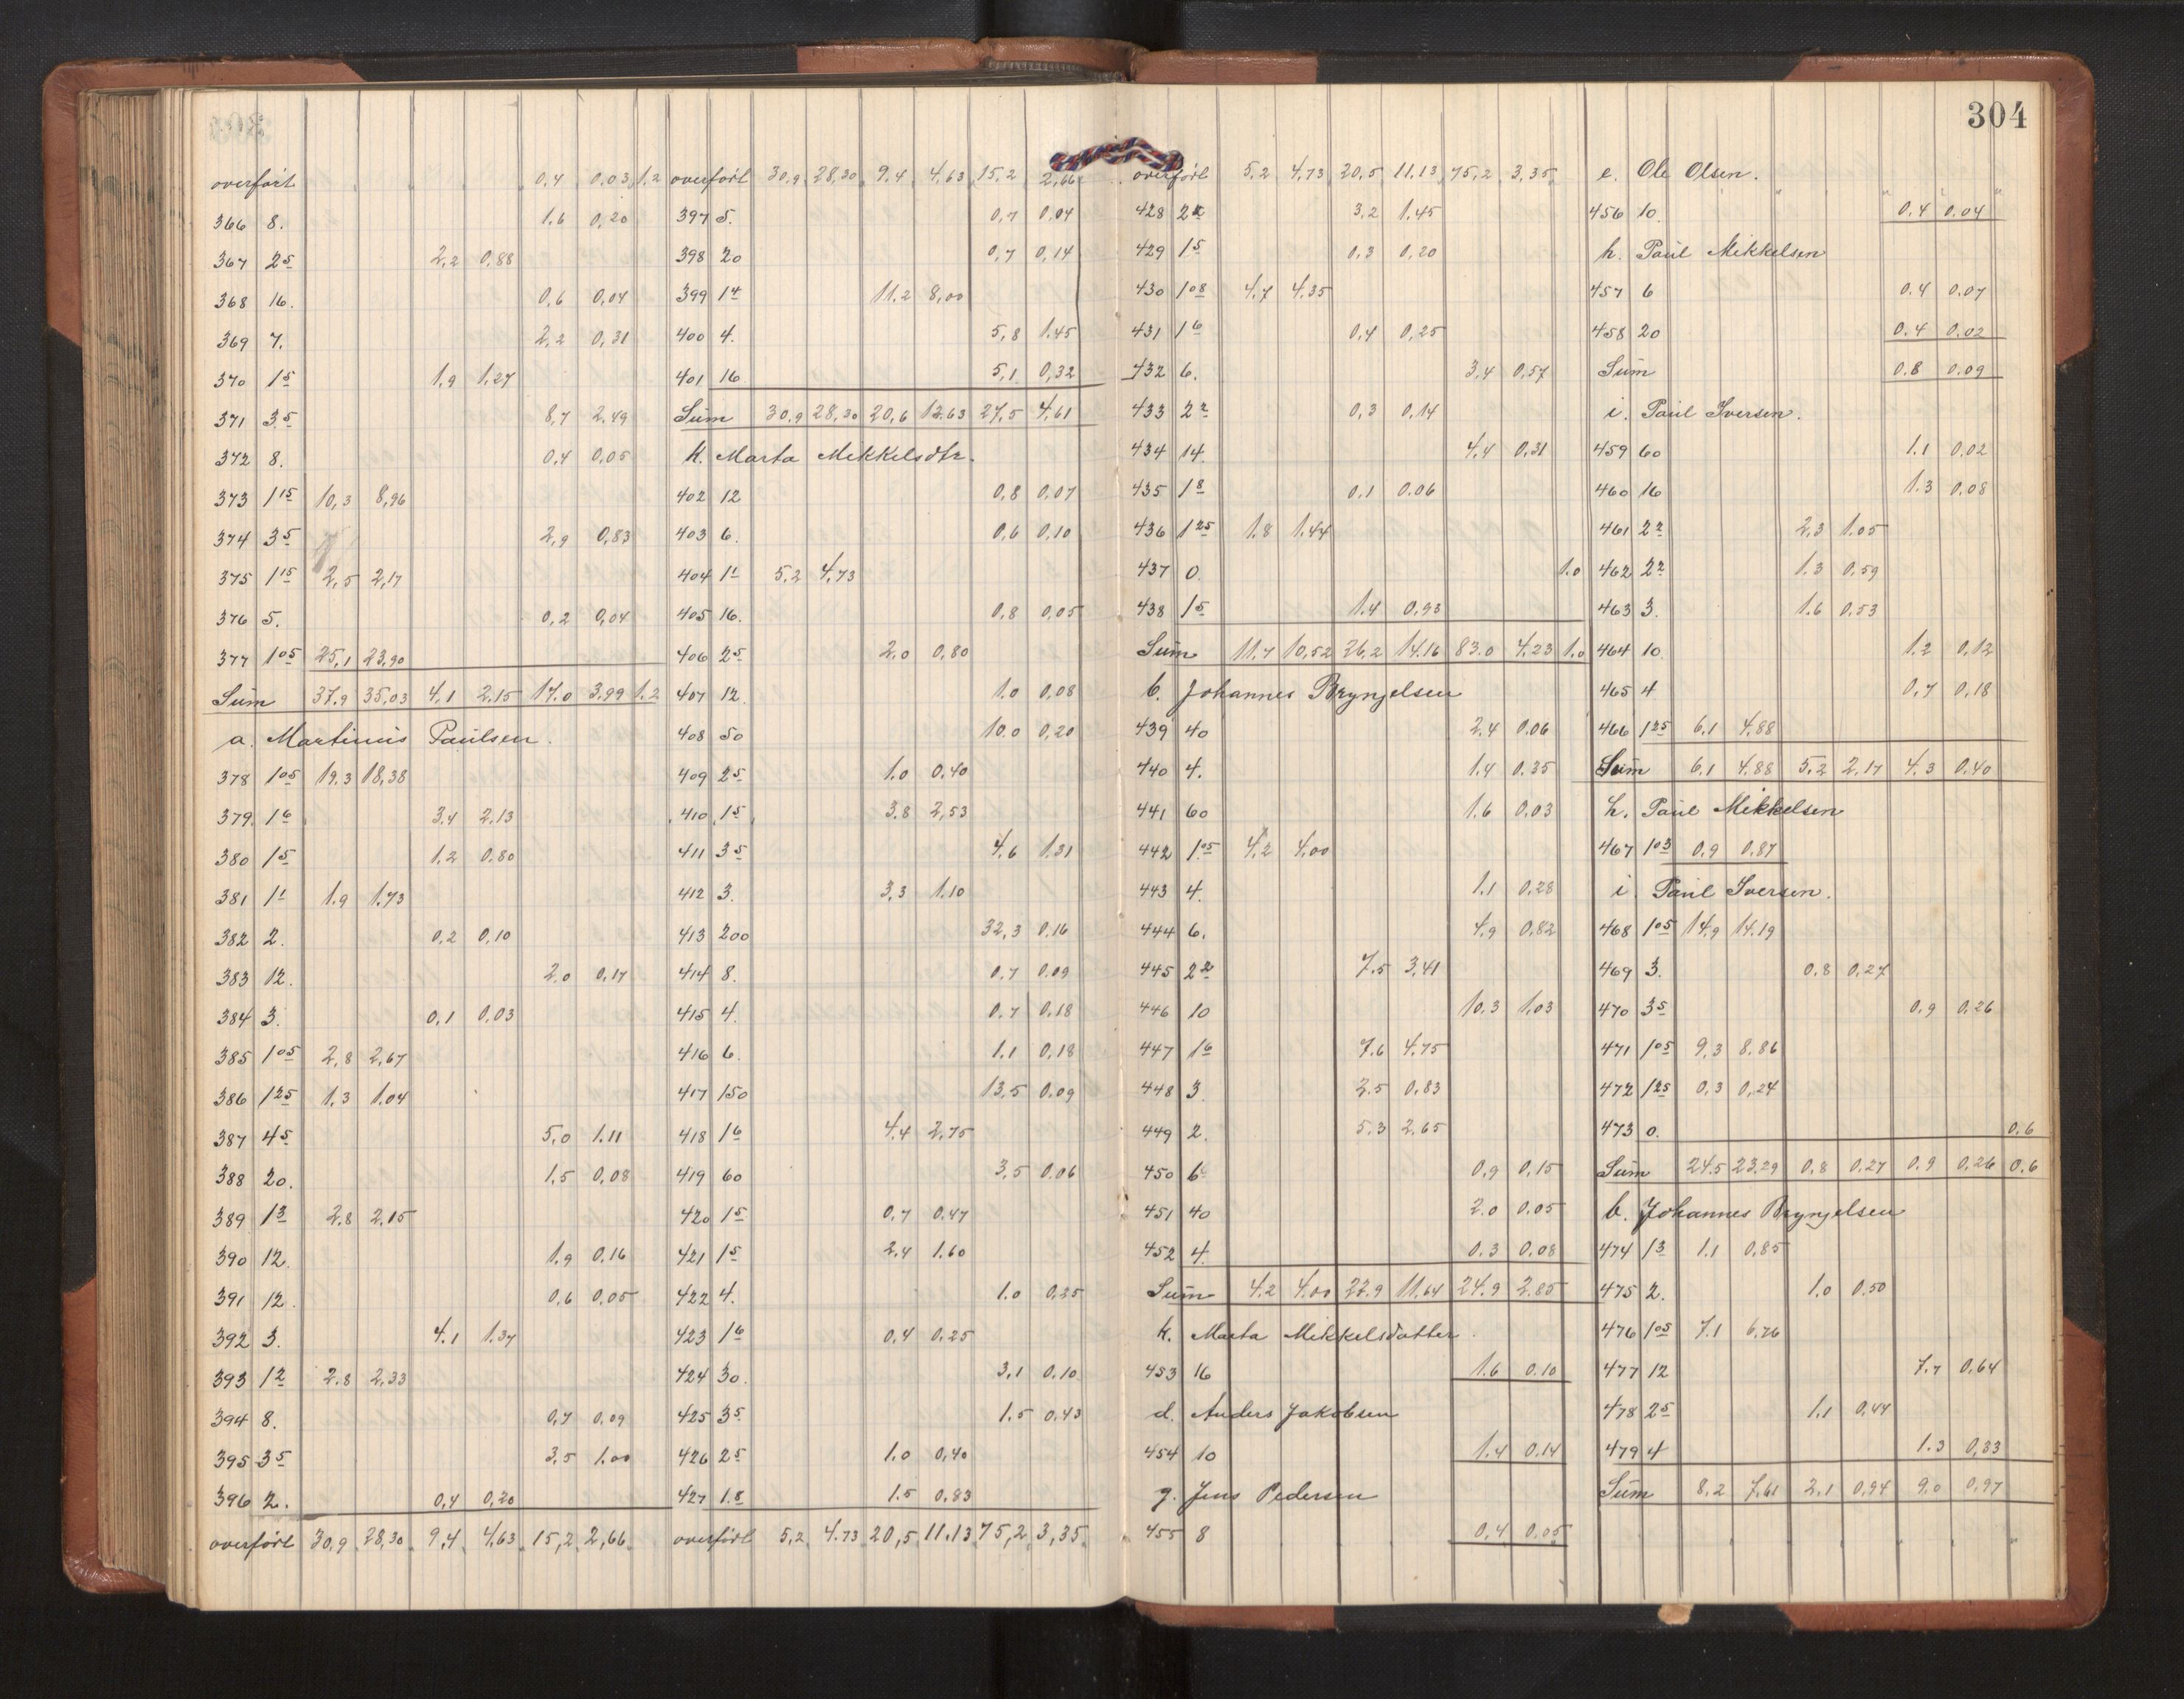 304
overført 0,4 0,03 1,2
366 8. 1,6 0,20
367 2⁵ 2,2 0,88
368 16. 0,6 0,04
369 7. 2,2 0,31
370 1⁵ 1,9 1,27
371 3⁵ 8,7 2,49
372 8. 0,4 0,05
373 1¹⁵ 10,3 8,96
374 3⁵ 2,9 0,83
375 1¹⁵ 2,5 2,17
376 5. 0,2 0,04
377 1⁰⁵ 25,1 23,90
Sum 37,9 35,03 4,1 2,15 17,0 3,99 1,2
a. Martinus Paulsen.
378 1⁰⁵ 19,3 18,38
379. 1⁶ 3,4 2,13
380 1⁵ 1,2 0,80
381 1¹ 1,9 1,73
382 2. 0,2 0,10
383 12. 2,0 0,17
384 3. 0,1 0,03
385 1⁰⁵ 2,8 2,67
386 1²⁵ 1,3 1,04
387 4⁵ 5,0 1.11
388 20. 1,5 0,08
389 1³ 2,8 2,15
390 12. 1,9 0,16
391 12. 0,6 0,05
392 3. 4,1 1,37
393 1² 2,8 2,33
394 8. 0,7 0,09
395 3⁵ 3,5 1,00
396 2. 0,4 0,20
overført 30,9 28,30 9,4 4,63 15,2 2,66
overført 30,9 28,30 9,4 4,63 15,2 2,66
397 5. 0,7 0,04
398 20 0,7 0,14
399 1⁴ 11,2 8,00
400 4. 5,8 1,45
401 16 5,1 0,32
Sum 30,9 28,30 20,6 12,63 27,5 4,61
k. Marta Mikkelsdtr.
402 12 0,8 0,07
403 6. 0,6 0,10
404 1¹ 5,2 4,73
405 16. 0,8 0,05
406 2⁵ 2,0 0,80
407 12. 1,0 0,08
408 50 10.0 0,20
409 2⁵ 1,0 0,40
410 1⁵ 3,8 2,53
411 3⁵ 4,6 1,31
412 3. 3,3 1,10
413 200 32,3 0,16
414 8. 0,7 0,09
415 4. 0,7 0,18
416 6. 1,1 0,18
417 150 13,5 0.09
418 1⁶ 4,4 2,75
419 60 3,5 0.06
420 1⁵ 0,7 0,47
421 1⁵ 2,4 1.60
422 4. 1.0 0,25
423 1⁶ 0,4 0,25
424 30. 3,1 0,10
425 3⁵ 1,5 0,43
426 2⁵ 1.0 0,40
427 1.⁸ 1.5 0,83
overført 5,2 4.73 20,5 11,13 75,2 3,35
overført 5,2 4,73 20,5 11,13 75,2 3,35
428 2² 3,2 1,45
429 1⁵ 0,3 0,20
430 1⁰⁸ 4,7 4,35
431 1⁶ 0,4 0,25
432 6. 3,4 0,57
433 2² 0,3 0,14
434 14. 4,4 0,31
435 1⁸ 0,1 0.06
436 1²⁵ 1,8 1,44
437 0. 1.0
438 1⁵ 1.4 0,93
Sum 11,7 10,52 26,2 14.16 83.0 4,23 1,0
b. Johannes Brynjelsen
439 40 2.4 0.06
440 4. 1.4 0.35
441 60 1.6 0.03
442 1.⁰⁵ 4,2 4,00
443 4. 1.1 0,28
444 6. 4.9 0,82
445 2² 7.5 3,41
446 10 10.3 1,03
447 1⁶ 7.6 4,75
448 3. 2.5 0,83
449 2. 5.3 2.65
450 6 0,9 0,15
451 40 2.0 0.05
452 4. 0.3 0,08
Sum 4,2 4.00 22.9 11,64 24.9 2.85
k. Marta Mikkelsdatter.
453 16 1.6 0.10
d. Anders Jakobsen
454 10 1.4 0.14
g. Jens Pedersen
455 8 0,4 0.05
e. Ole Olsen.
456 10. 0.4 0.04
h. Paul Mikkelsen
457 6 0.4 0.07
458 20 0.4 0.02
Sum 0.8 0.09
i. Paul Iversen.
459 60 1.1 0,02
460 16 1.3 0,08
461 2² 2,3 1.05
462 2² 1.3 0,59
463 3. 1.6 0,53
464 10. 1.2 0,12
465 4 0,7 0,18
466 1²⁵ 6,1 4,88
Sum 6,1 4.88 5,2 2,17 4.3 0,40
h. Paul Mikkelsen
467 1⁰³ 0,9 0,87
i. Paul Iversen.
468 1⁰⁵ 14,9 14,19
469 3. 0,8 0,27
470 3⁵ 0,9 0,26
471 1⁰⁵ 9,3 8.86
472 1²⁵ 0,3 0,24
473 0. 0.6
Sum 24.5 23.29 0,8 0,27 0.9 0,26 0,6
b. Johannes Brynjelsen
474 1³ 1.1 0,85
475 2. 1.0 0.50
476 1⁰⁵ 7.1 6,76
477 12 7.7 0,64
478 2⁵ 1.1 0,44
479 4 1.3 0,33
Sum 8,2 7,61 2,1 0,94 9,0 0,97